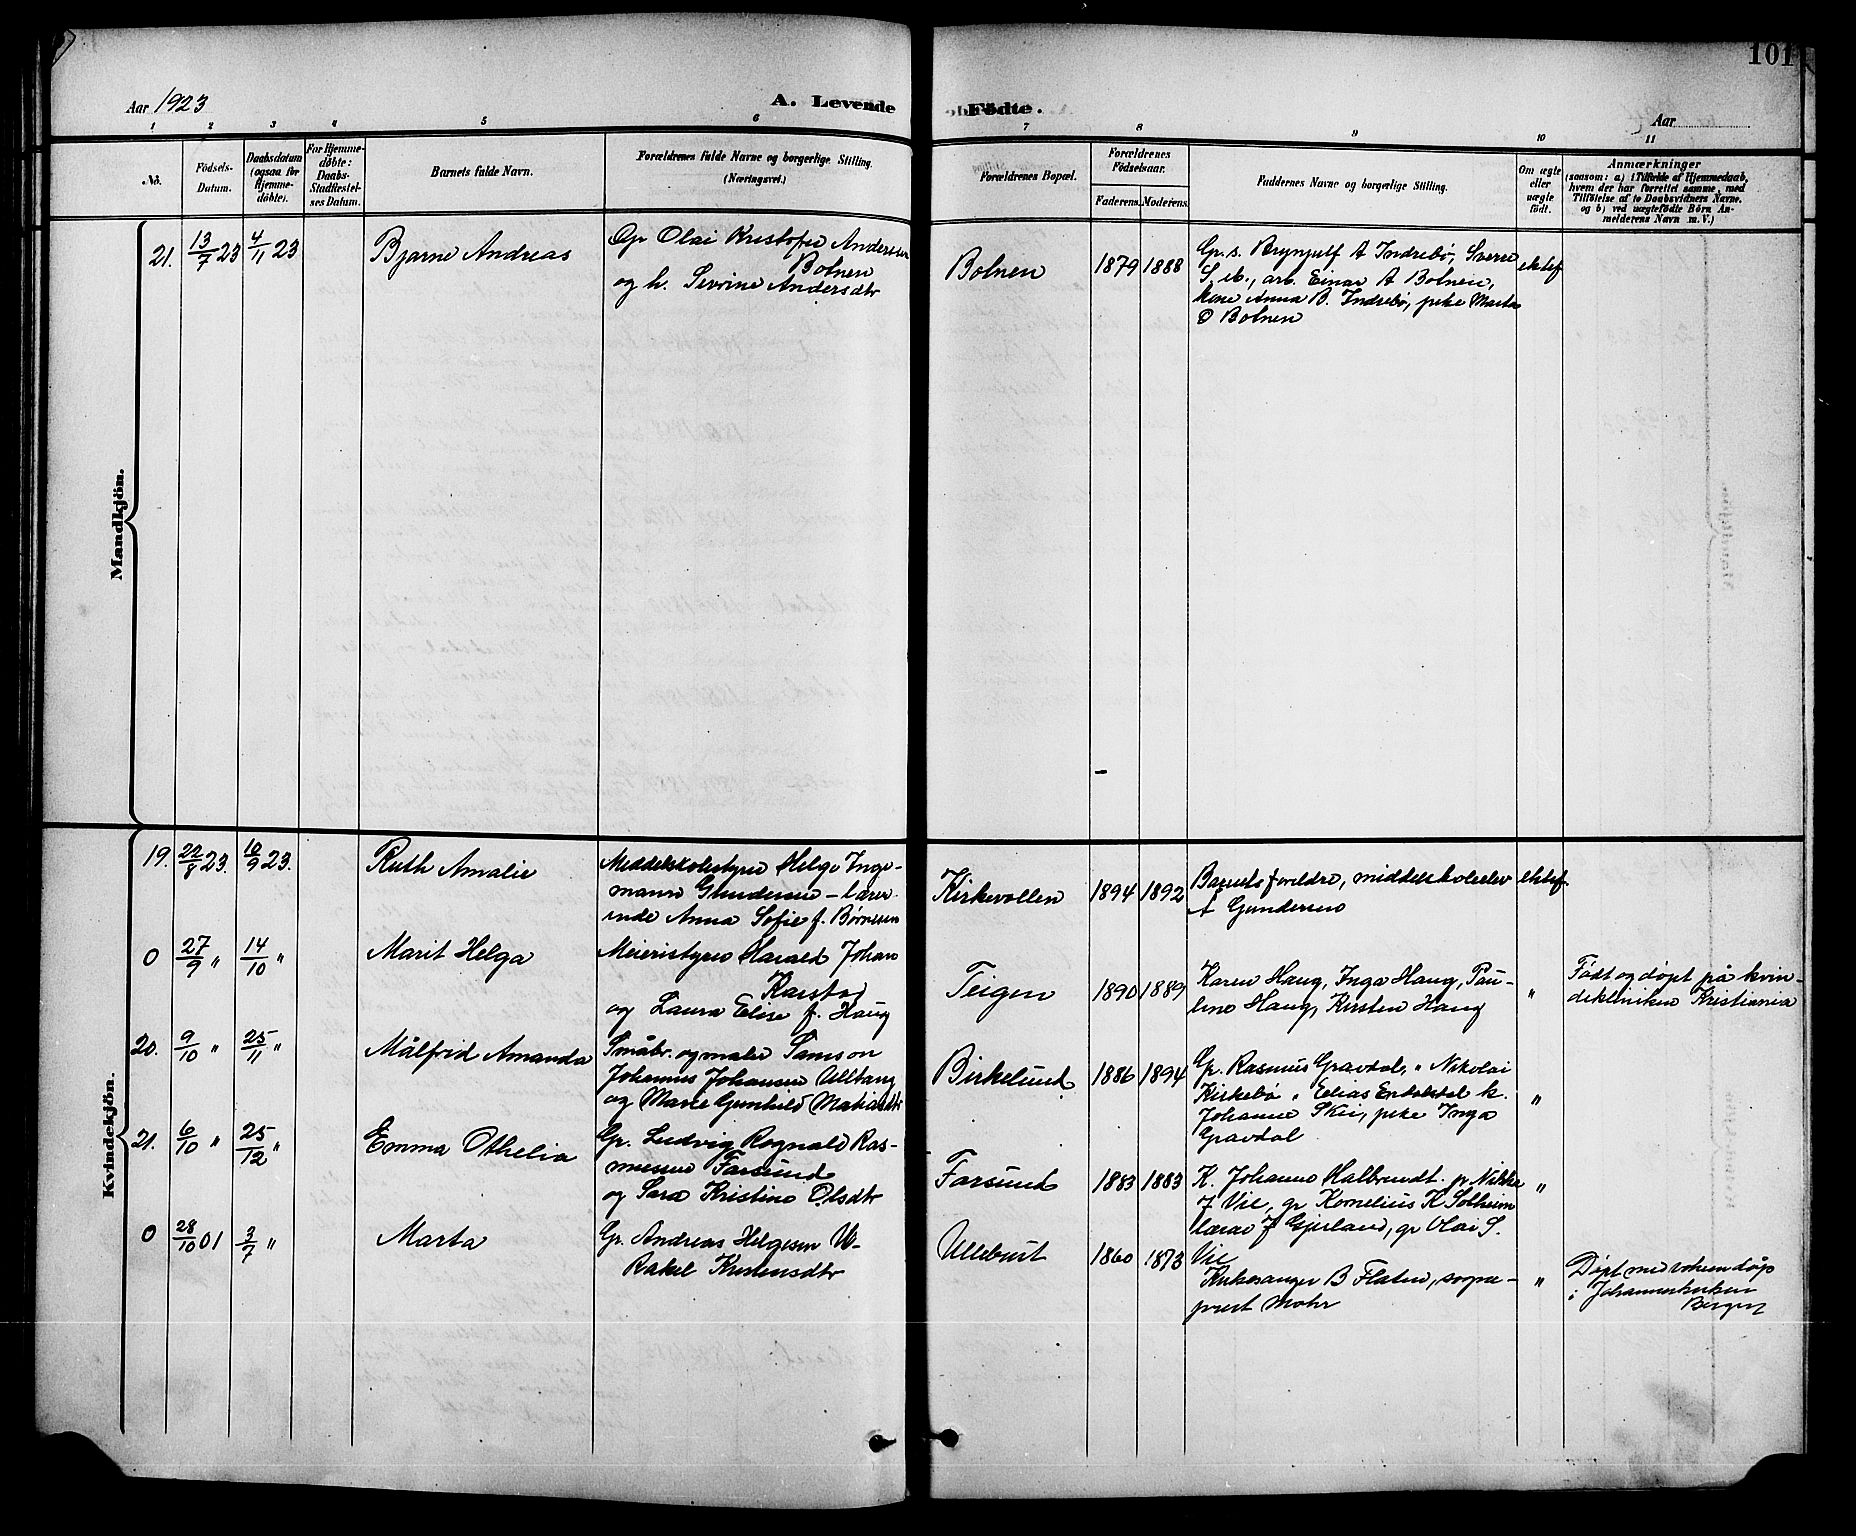 101
Aar 1923
A. Levende Födte.
Aar
1 2 3 4 5 6 7 8 9 10 11
No.
Födsels-
Datum.
Daabsdatum
(ogsaa for
Hjemme-
döbte).
For Hjemme-
döbte:
Daabs-
Stadfæstel-
ses Datum.
Barnets fulde Navn.
Forældrenes fulde Navne og borgerlige Stilling.
(Næringsvei.)
Forældrenes Bopæl.
Forældrenes
Födselsaar.
Faderens. Moderens.
Faddernes Navne og borgerlige Stilling.
Om ægte
eller
uægte
födt.
Anmærkninger
(saasom: a) i Tilfælde af Hjemmedaab,
hvem der har forrettet samme, med
Tilföielse af to Daabsvidners Navne.
og b) ved uægtefödte Börn An-
melderens Navn m. V.)
Mandkjön.
21. 13/7 23 4/11 23 Bjarne Andreas
Gr Olai Kristofer Andersen
Bolnen
og h. Sevrine Andersdtr
Bolnen 1879 1888
Gr. s. Brynjulf A Indrebø, Sverre
S. ib., arb. Einar A Bolnen,
kone Anna B. Indrebø, pike Marta
O Bolnen
ektef
Kvindekjön.
19. 22/8 23. 10/9 23. Ruth Amalie
Middelskolestyrer Helge Inge-
mann Gundersen – lærer-
inde Anna Sofie f. Børnesen
Kirkevollen 1894 1892
Barnets foreldre, middelskoleelev
A Gundersen
ektef.
0 27/9 " 14/10 " Marit Helga
Meieristyrer Harald Johan
Karstad
og Laura Elise f. Haug
Teigen 1890 1889
Karen Haug, Inga Haug, Pau-
line Haug, Kirsten Haug
"
Født og døpt på kvin-
deklinikken Kristiania
20. 9/10 " 25/11 " Målfrid Amanda
Småbr. og maler Samson
Johannes Johansen Ulltang
og Marie Gunhild Matiasdtr
Birkelund 1886 1894
Gr. Rasmus Gravdal, " Nikolai
Kirkebø " Elias Endalstal k.
Johanne Skei, pike Inga
Gravdal
"
21. 6/10 " 25/12 " Emma Othelia
Gr. Ludvig Ragnald Ras-
mussen Farsund
og Sara Kristine Olsdtr
Farsund 1883 1883
K. Johanne Halbrendt. p. Nikka
J Vie, gr Kornelius K Solheim
lærar J Gjerland, gr Olai S.
Vie
"
0 28/10 01 3/7 " Marta
Gr. Andreas Helgesen U-
Rakel Kristensdtr
Ullebust 1860 1873
Kirkesanger B Flaten, sogne-
prest Mohr
"
Døpt med voksendøp
i Johanneskirken
Bergen